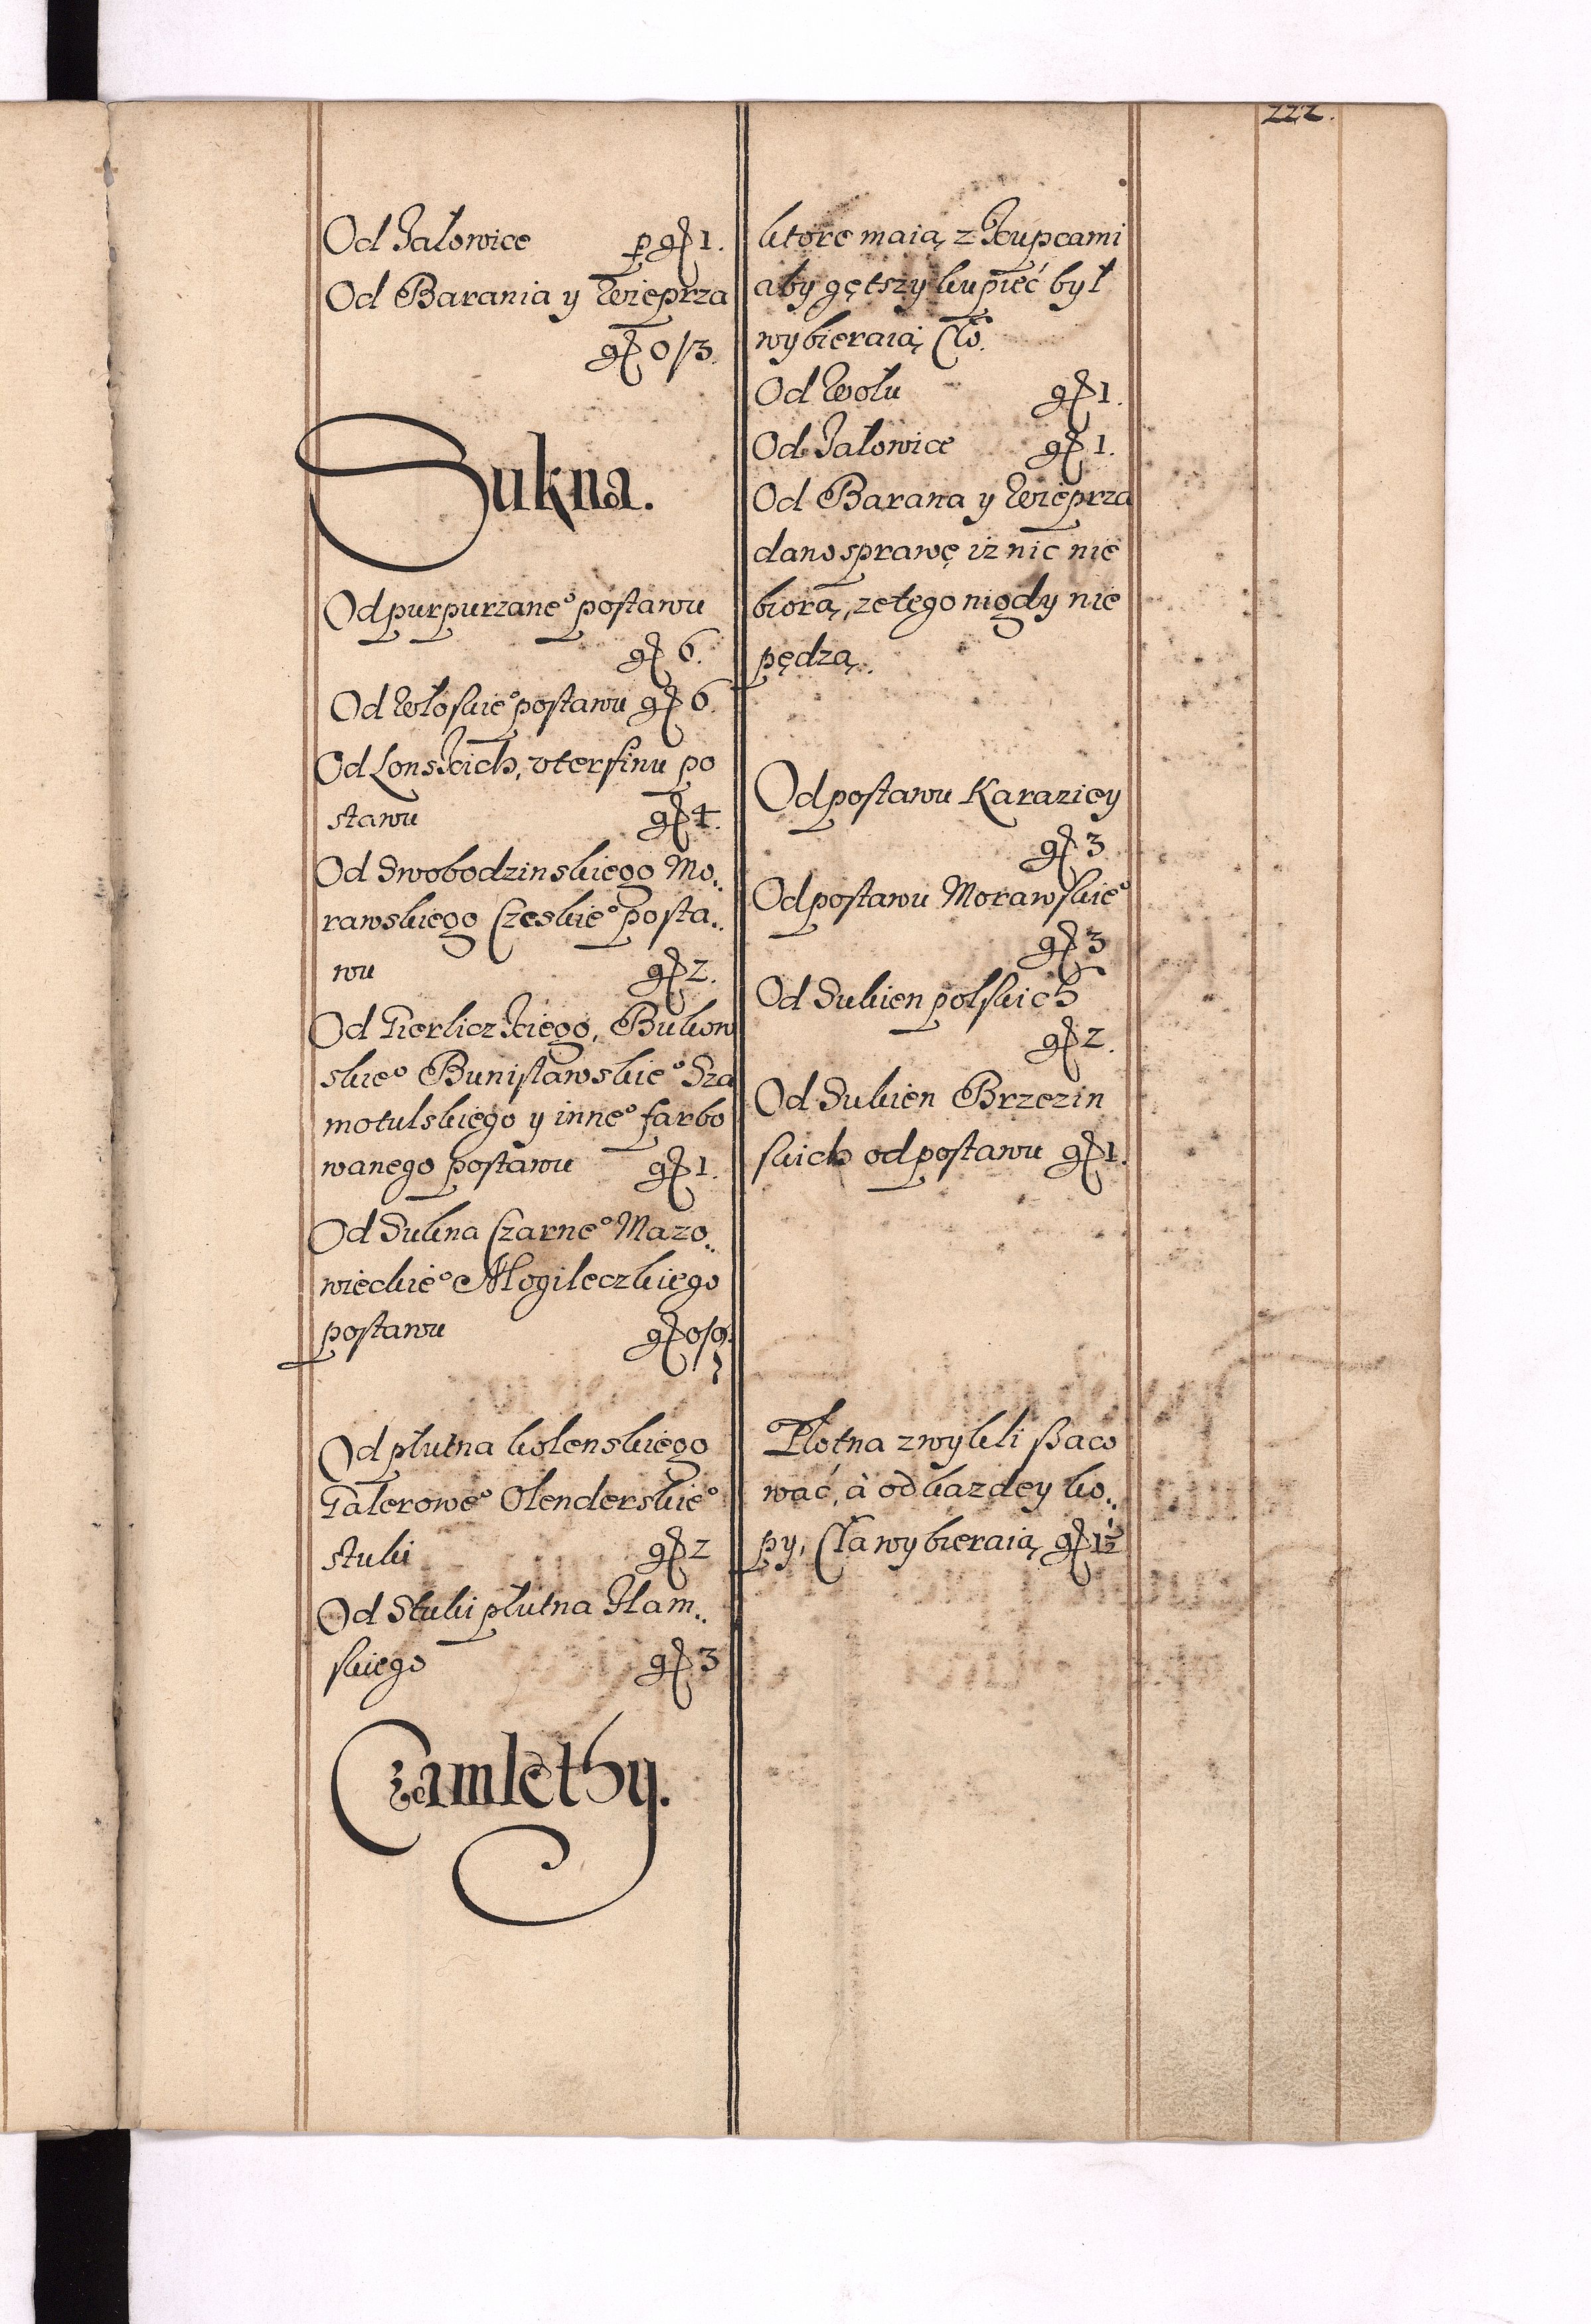 222.
Od Jałowice p gr 1.
Od Barania y Wieprza
gr 0/3.
Sukna.
Od purpurzane° postawu
gr 6.
Od Włoskie° postawu gr 6.
Od Lonskich, vterfinu po
stawu gr 4.
Od Swobodzinskiego Mo..
rawskiego Czeskie° posta..
wu gr 2.
Od Gierliczkiego, Bukow
skie° Bunisławskie° Sza
motulskiego y inne° farbo
wanego postawu gr 1.
Od Sukna Czarne° Mazo..
wieckie° Mogileczkiego
postawu gr 0/9.
Od płutna kolenskiego
Galerowe° Olenderskie°
stuki gr 2
Od Stuki płutna Flam..
skiego gr 3
Czamlethy.
ktore maią z Kupcami
aby gętszy kupieć był
wybieraią Cło.
Od Wołu gr 1.
Od Jałowice gr 1.
Od Barana y Wieprza
dano sprawę iz nic nie
biorą, ze tego nigdy nie
pędzą.
Od postawu Karaziey
gr 3
Od postawu Morawskie°
gr 3
Od Sukien polskich
gr 2.
Od Sukien Brzezin
skich od postawu gr 1.
Płotna zwykli szaco
wać, à od kazdey ko..
py, Cła wybieraią gr 1½